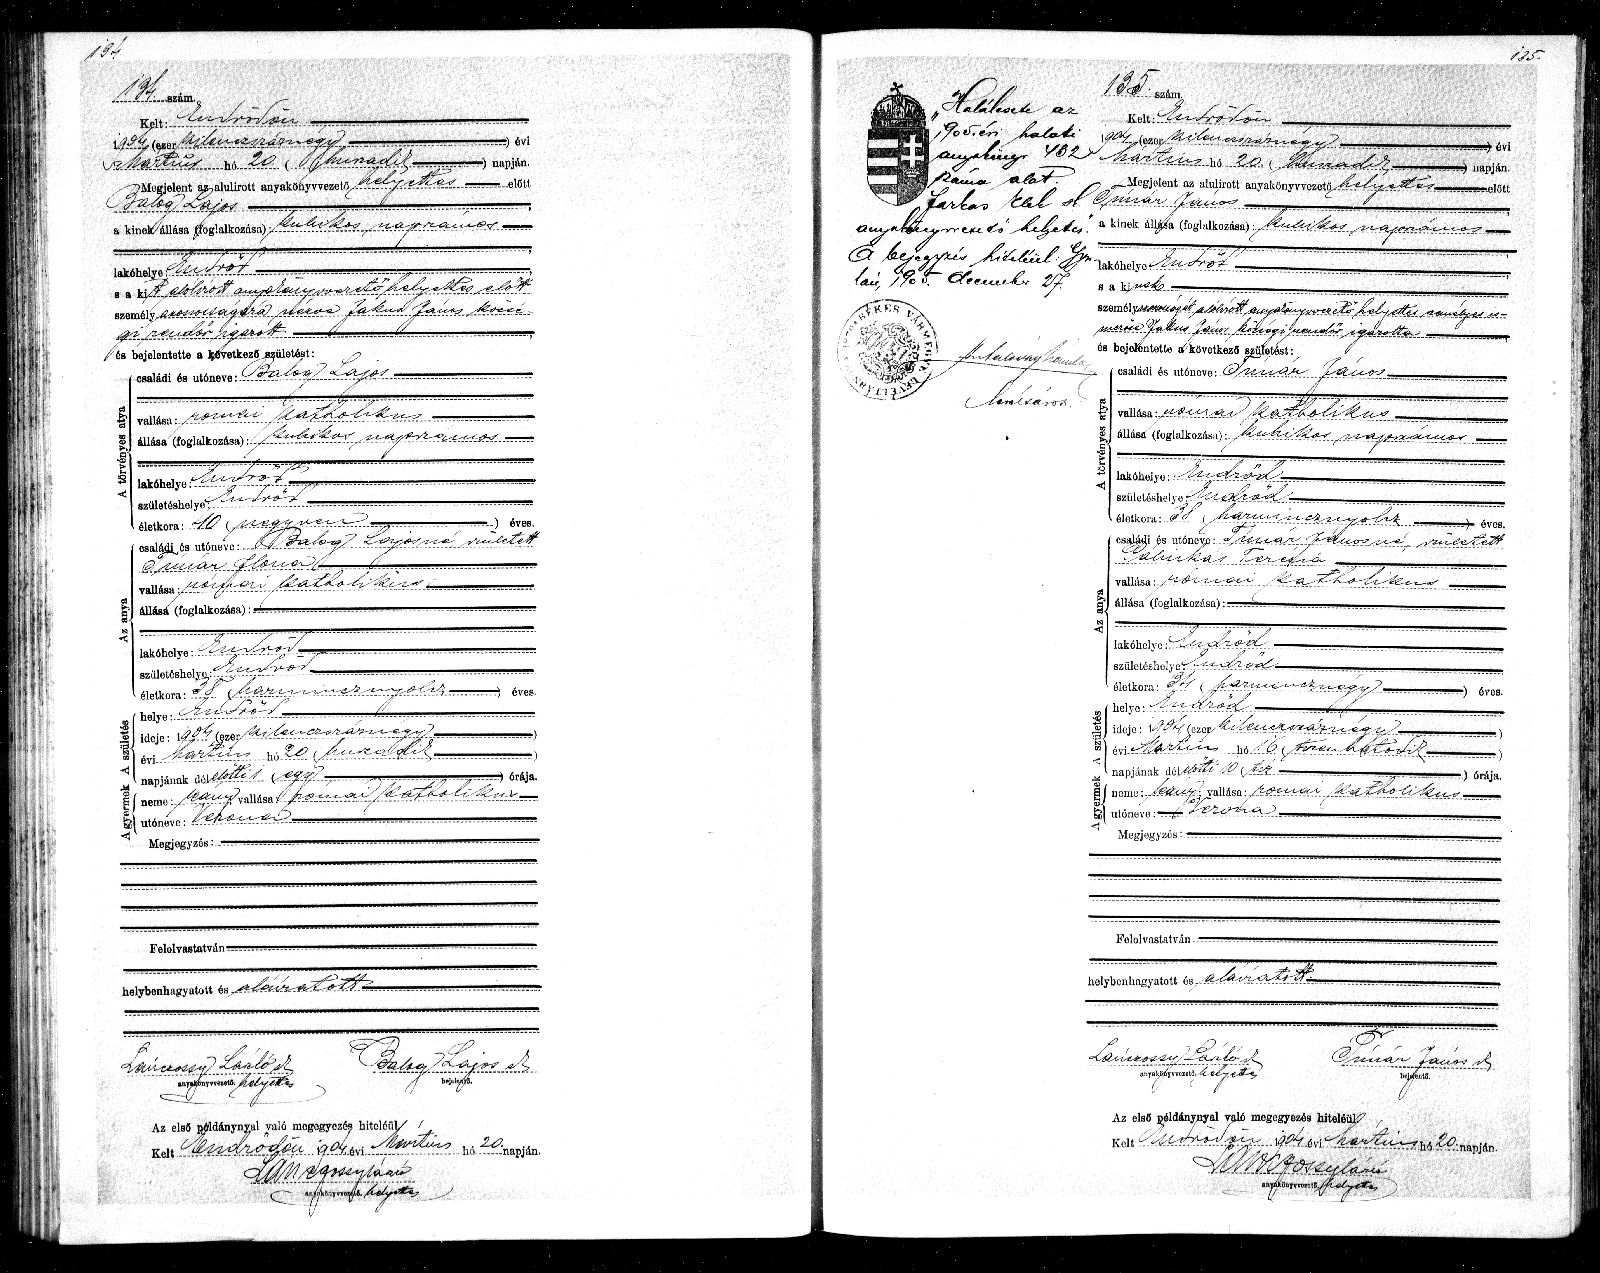 134.
134. szám.
Kelt: Endrődön
1904 (ezer kilenczszáznégy) évi
Martius hó 20. (huszadik) napján.
Megjelent az alulirott anyakönyvvezető helyettes előtt
Balog Lajos
a kinek állása (foglalkozása): kubikos napszámos
lakóhelye Endrőd
s a kit alolirott anyakönyvvezető helyettes előtt
személyazonosságára nézve Jakus János közsé-
gi rendőr igazolt
és bejelentette a következő születést:
A törvényes atya
családi és utóneve: Balog Lajos
vallása: római katholikus
állása (foglalkozása): kubikos napszámos
lakóhelye: Endrőd
születéshelye: Endrőd
életkora: 40 (negyven) éves.
Az anya
családi és utóneve: Balog Lajosné született
Timár Ilona
vallása: római katholikus
állása (foglalkozása):
lakóhelye: Endrőd
születéshelye: Endrőd
életkora: 38 (harmincznyolcz) éves.
A születés
helye: Endrőd
ideje: 1904 (ezer kilenczszáznégy)
évi Martius hó 20 (huszadik)
napjának délelőtti 1 (egy) órája.
A gyermek
neme: leány, vallása: római katholikus
utóneve: Verona
Megjegyzés:
Felolvastatván
helybenhagyatott és aláiratott
Lánczossy László sk Balog Lajos sk
anyakönyvvezető. helyettes bejelentő.
Az első példánynyal való megegyezés hiteléül
Kelt Endrődön 1904 évi Martius hó 20. napján.
Lánczossy László
anyakönyvvezető. helyettes
135.
„Halálesete az
1905. évi halotti
anyakönyv 432
száma alat.
Farkas Elek sk
anyakönyvvezető helyetes."
A bejegyzés hiteléül. Gyu-
lán, 1905 december 27.
BÉKÉS VÁRMEGYE LEVÉLTÁRA
levéltáros.
135. szám.
Kelt: Endrődön
1904 (ezer kilenczszáznégy) évi
Martius hó 20. (huszadik) napján.
Megjelent az alulirott anyakönyvvezető helyettes előtt
Timár János
a kinek állása (foglalkozása): kubikos napszámos
lakóhelye Endrőd
s a kinek
személyazonosságát alolirott anyakönyvvezető helyettes személyes is-
merőse Jakus János községi rendőr igazolta
és bejelentette a következő születést:
A törvényes atya
családi és utóneve: Timár János
vallása: római katholikus
állása (foglalkozása): kubikos napszámos
lakóhelye: Endrőd
születéshelye: Endrőd
életkora: 38 (harmincznyolcz) éves.
Az anya
családi és utóneve: Timár Jánosné, született
Terézia
vallása: római katholikus
állása (foglalkozása):
lakóhelye: Endrőd
születéshelye: Endrőd
életkora: 34 (harmincznégy) éves.
A születés
helye: Endrőd
ideje: 1904 (ezer kilenczszáznégy)
évi Martius hó 16 (tizenhatodik)
napjának délelőtti 10 (tiz) órája.
A gyermek
neme: leány, vallása: római katholikus
utóneve: Verona
Megjegyzés:
Felolvastatván
helybenhagyatott és aláiratott
Lánczossy László sk Timár János sk
anyakönyvvezető. helyettes bejelentő.
Az első példánynyal való megegyezés hiteléül
Kelt Endrődön 1904 évi Martius hó 20. napján.
Lánczossy László
anyakönyvvezető. helyettes